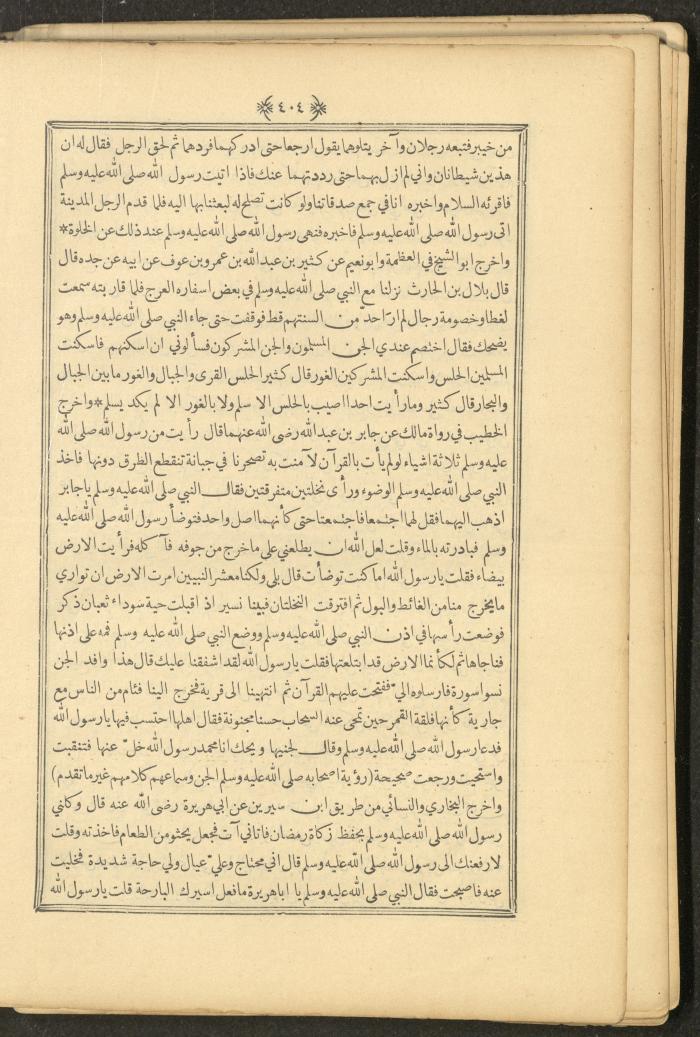 ﴿٤٠٤﴾
من خيبر فتبعه رجلان وآخر يتلوهما يقول ارجعا حتى ادركهما فردهما ثم لحق الرجل فقال له ان
هذين شيطانان واني لم ازل بهما حتى رددتهما عنك فاذا اتيت رسول الله صلى الله عليه وسلم
فاقرئه السلام واخبره انا في جمع صدقاتنا ولو كانت تصلح له لبعثنا بها اليه فلما قدم الرجل المدينة
اتى رسول الله صلى الله عليه وسلم فاخبره فنهى رسول الله صلى الله عليه وسلم عند ذلك عن الخلوة*
واخرج ابو الشيخ في العظمة وابو نعيم عن كثير بن عبد الله بن عمرو بن عوف عن ابيه عن جده قال
قال بلال بن الحارث نزلنا مع النبي صلى الله عليه وسلم في بعض اسفاره العرج فلما قاربته سمعت
لغطا وخصومة رجال لم ار احد من السنتهم قط فوقفت حتى جاء النبي صلى الله عليه وسلم وهو
يضحك فقال اختصم عندي الجن المسلمون والجن المشركون فسألوني ان اسكنهم فاسكنت
المسلمين الجلس واسكنت المشركين الغور قال كثير الجلس القرى والجبال والغور ما بين الجبال
والبحار قال كثير وما رأيت احدا اصيب بالجلس الا سلم ولا بالغور الا لم يكد يسلم* واخرج
الخطيب في رواة مالك عن جابر بن عبد الله رضى الله عنهما قال رأيت من رسول الله صلى الله
عليه وسلم ثلاثة اشياء لو لم يأت بالقرآن لآمنت به تصحرنا في جبانة تنقطع الطرق دونها فاخذ
النبي صلى الله عليه وسلم الوضوء ورأى نخلتين متفرقتين فقال النبي صلى الله عليه وسلم يا جابر
اذهب اليهما فقل لهما اجتمعا فاجتمعتا حتى كأنهما اصل واحد فتوضأ رسول الله صلى الله عليه
وسلم فبادرته بالماء وقلت لعل الله ان يطلعني على ما خرج من جوفه فآكله فرأيت الارض
بيضاء فقلت يا رسول الله اما كنت توضأت قال بلى ولكنا معشر النبيين امرت الارض ان تواري
ما يخرج منا من الغائط والبول ثم افترقت النخلتان فبينا نسير اذ اقبلت حية سوداء ثعبان ذكر
فوضعت رأسها في اذن النبي صلى الله عليه وسلم ووضع النبي صلى الله عليه وسلم فمه على اذنها
فناجاها ثم لكأنما الارض قد ابتلعتها فقلت يا رسول الله لقد اشفقنا عليك قال هذا وافد الجن
نسوا سورة فارسلوه الي فتحت عليهم القرآن ثم انتهينا الى قرية فخرج الينا فئام من الناس مع
جارية كأنها فلقة القمر حين تمحى عنه السحاب حسنا مجنونة فقال اهلها احتسب فيها يا رسول الله
فدعا رسول الله صلى الله عليه وسلم وقال لجنيها ويحك انا محمد رسول الله خلّ عنها فتنقبت
واستحيت ورجعت صحيحة (رؤية اصحابه صلى الله عليه وسلم الجن وسماعهم كلامهم غير ما تقدم)
واخرج البخاري والنسائي من طريق ابن سيرين عن ابي هريرة رضى الله عنه قال وكلني
رسول الله صلى الله عليه وسلم بحفظ زكاة رمضان فاتاني آت فجعل يحثو من الطعام فاخذته وقلت
لارفعنك الى رسول الله صلى الله عليه وسلم قال اني محتاج وعليّ عيال ولي حاجة شديدة فخليت
عنه فاصبحت فقال النبي صلى الله عليه وسلم يا ابا هريرة ما فعل اسيرك البارحة قلت يا رسول الله